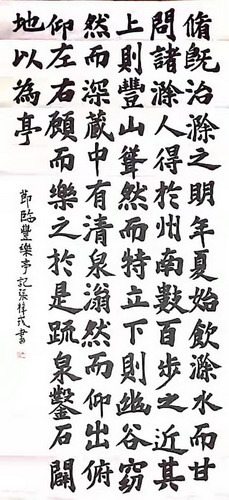 脩既治滁之明年夏始飲滁水而甘
問諸滁人得於州南數百步之近其
上則豐山聳然而特立下則幽谷窈
然而深藏中有清泉滃然而仰出俯
仰左右顧而樂之於是疏泉鑿石闢
地以為亭
節臨豐樂亭記張戎書